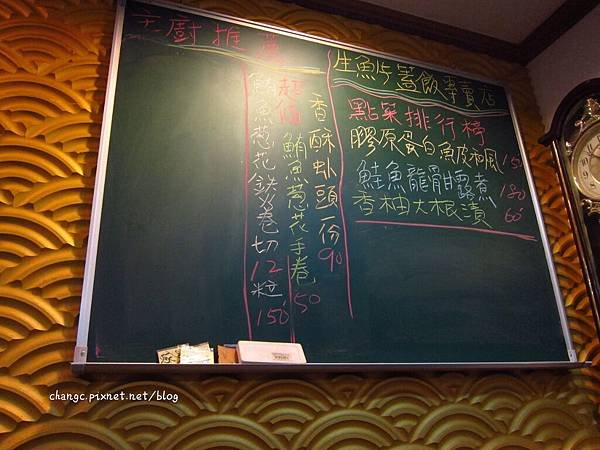 主廚推薦
生魚片蓋飯專賣店
點菜排行榜
膠原蛋白魚皮和風 150
鮭魚龍骨甘露煮 180
香柚大根漬 60
香酥虱頭一份90
超值
鮪魚蔥花手卷 50
鮪魚蔥花鐵火卷切12粒 150
changc.pixnet.net/blog